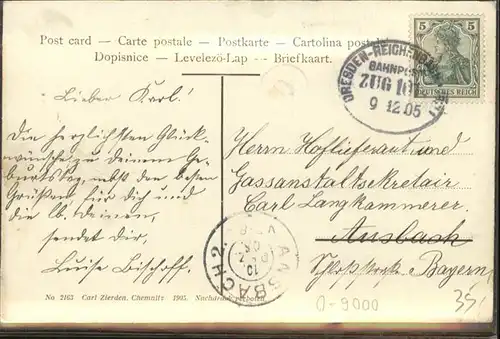 Post card - Carte postale - Postkarte - Cartolina postale
Dopisnice - Levelező-Lap - Briefkaart.
5 5
DEUTSCHES REICH
DRESDEN-REICHENBACH
BAHNPOST
ZUG 10
9 12 05
Lieber Karl!
Die herzlichsten Glück-
wünsche zu deinem Ge-
burtstag, nebst den besten
Grüßen, für dich und
die lb. deinen,
sendet dir,
Luise Bischoff.
Herrn Hoflieferant und
Gassanstaltsekretair
Carl Langkammerer.
Ansbach
Bayern
ANSBACH 2.
10
No 2163 Carl Zierden, Chemnitz 1905. Nachdruck verboten.
0-9000
35,